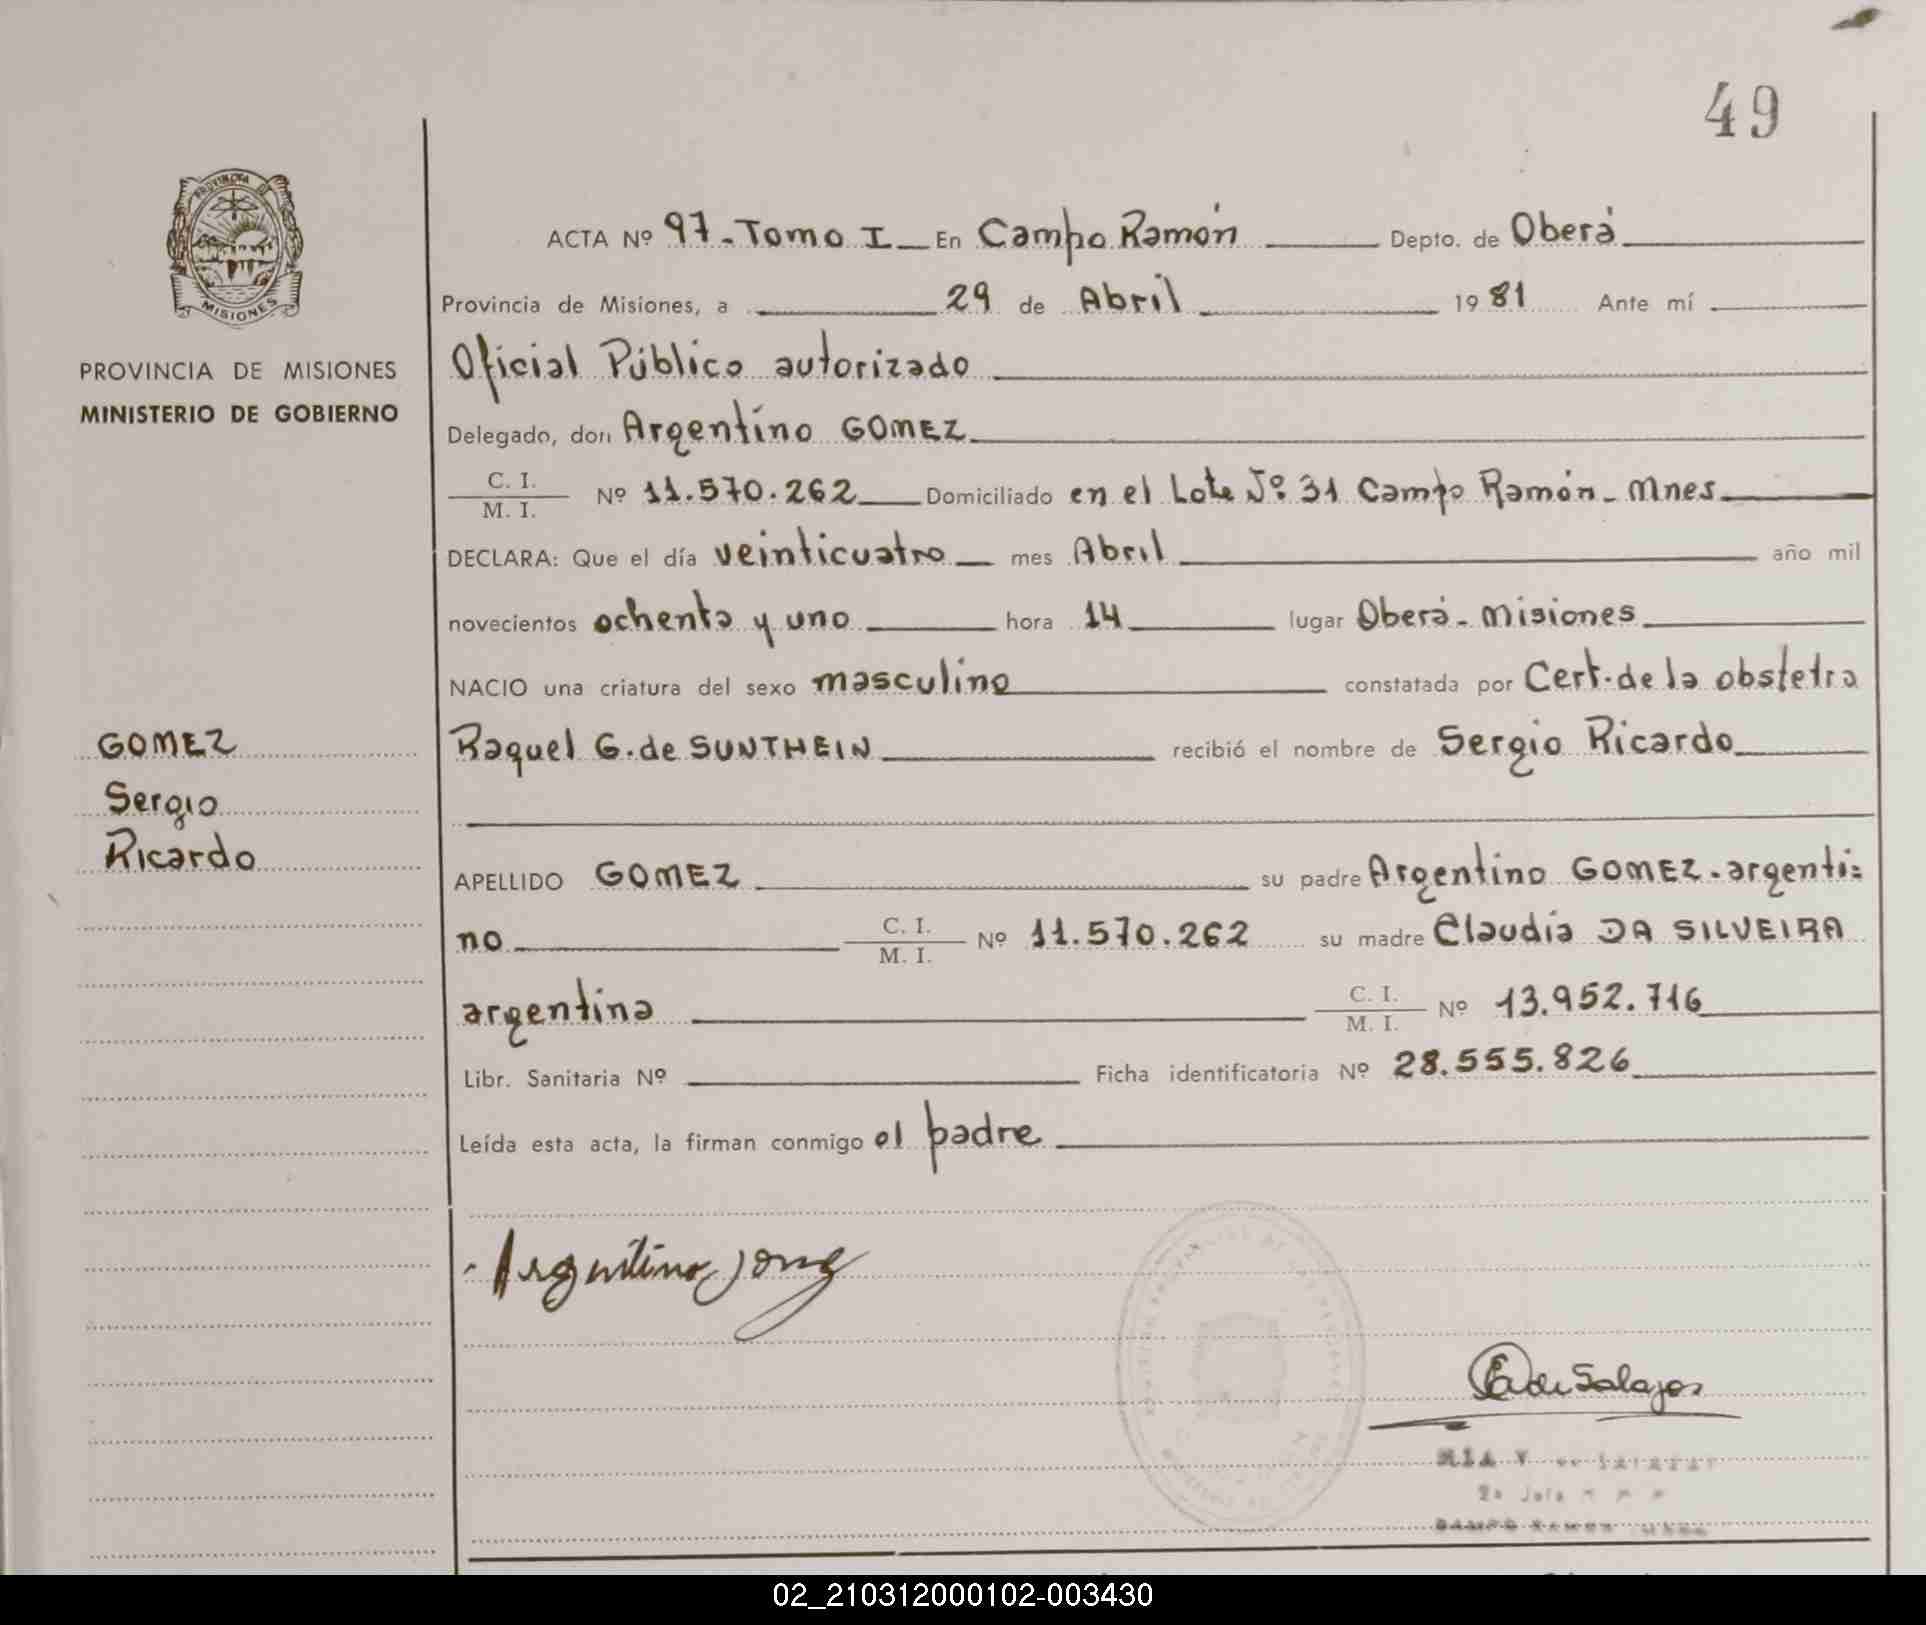 49
PROVINCIA DE
MISIONES
PROVINCIA DE MISIONES
MINISTERIO DE GOBIERNO
GOMEZ
Sergio
Ricardo
ACTA Nº 97-Tomo I En Campo Ramón Depto. de Oberá
Provincia de Misiones, a 29 de Abril 1981 Ante mí
Oficial Público autorizado
Delegado, don Argentino GOMEZ
C. I.
M. I. Nº 11.570.262 Domiciliado en el Lote Nº 31 Campo Ramón - Mnes
DECLARA: Que el día veinticuatro mes Abril año mil
novecientos ochenta y uno hora 14 lugar Oberá - Misiones
NACIO una criatura del sexo masculino constatada por Cert. de la obstetra
Raquel G. de SUNTHEIN recibió el nombre de Sergio Ricardo
APELLIDO GOMEZ su padre Argentino GOMEZ - argenti=
no C. I.
M. I. Nº 11.570.262 su madre Claudia DA SILVEIRA
argentina C. I.
M. I. Nº 13.952.716
Libr. Sanitaria Nº Ficha identificatoria Nº 28.555.826
Leída esta acta, la firman conmigo el padre
Argentino
de Salazar
CAMPO RAMON
02_210312000102-003430